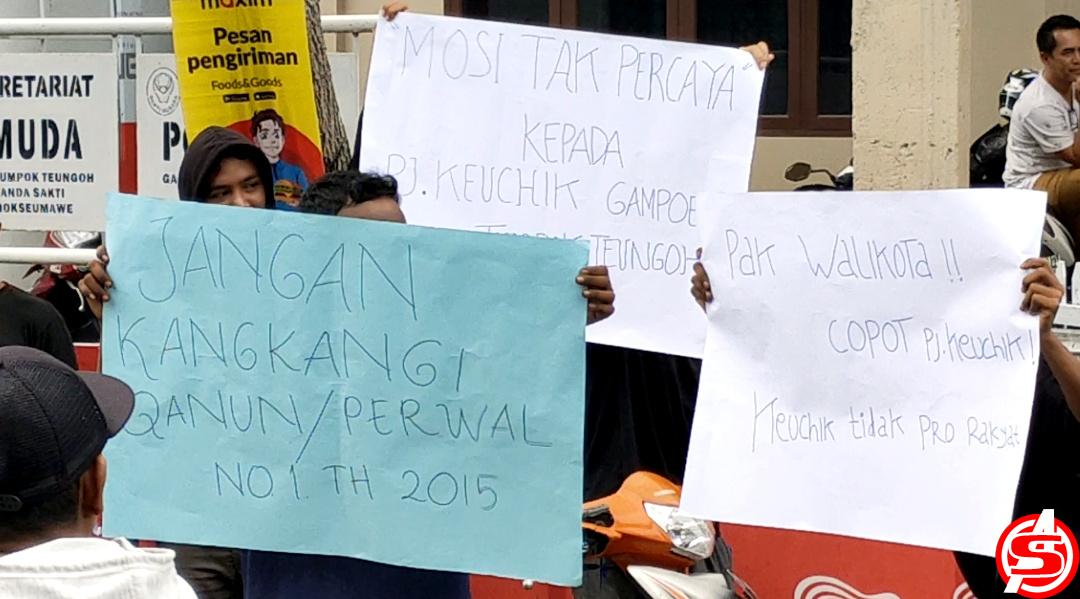 maxim
Pesan
pengiriman
Foods&Goods
RETARIAT
MUDA
UMPOK TEUNGOH
ANDA SAKTI
HOKSEUMAWE
"MOSI TAK PERCAYA"
KEPADA
PJ. KEUCHIK GAMPO
TEUNGOH
JANGAN
KANGKANGI
QANUN/PERWAL
NO. 1. TH 2015
Pak Walikota !!
COPOT PJ. Keuchik !
Keuchik tidak PRO Rakyat